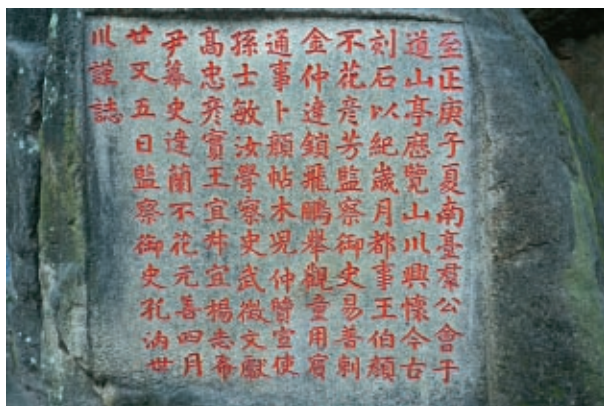 至正庚子夏南臺羣公會于
道山亭應覽山川興懷今古
刻石以紀歲月都事王伯顏
不花彦芳監察御史易普剌
金仲達鎖飛鵬舉觀童用賓
通事卜顏帖木児仲贇宣使
孫士敏汝學察史武徵文獻
高忠彦實王宜舛宜楊志希
尹幕史達蘭不花元善四月
廿又五日監察御史孔汭世
川謹誌